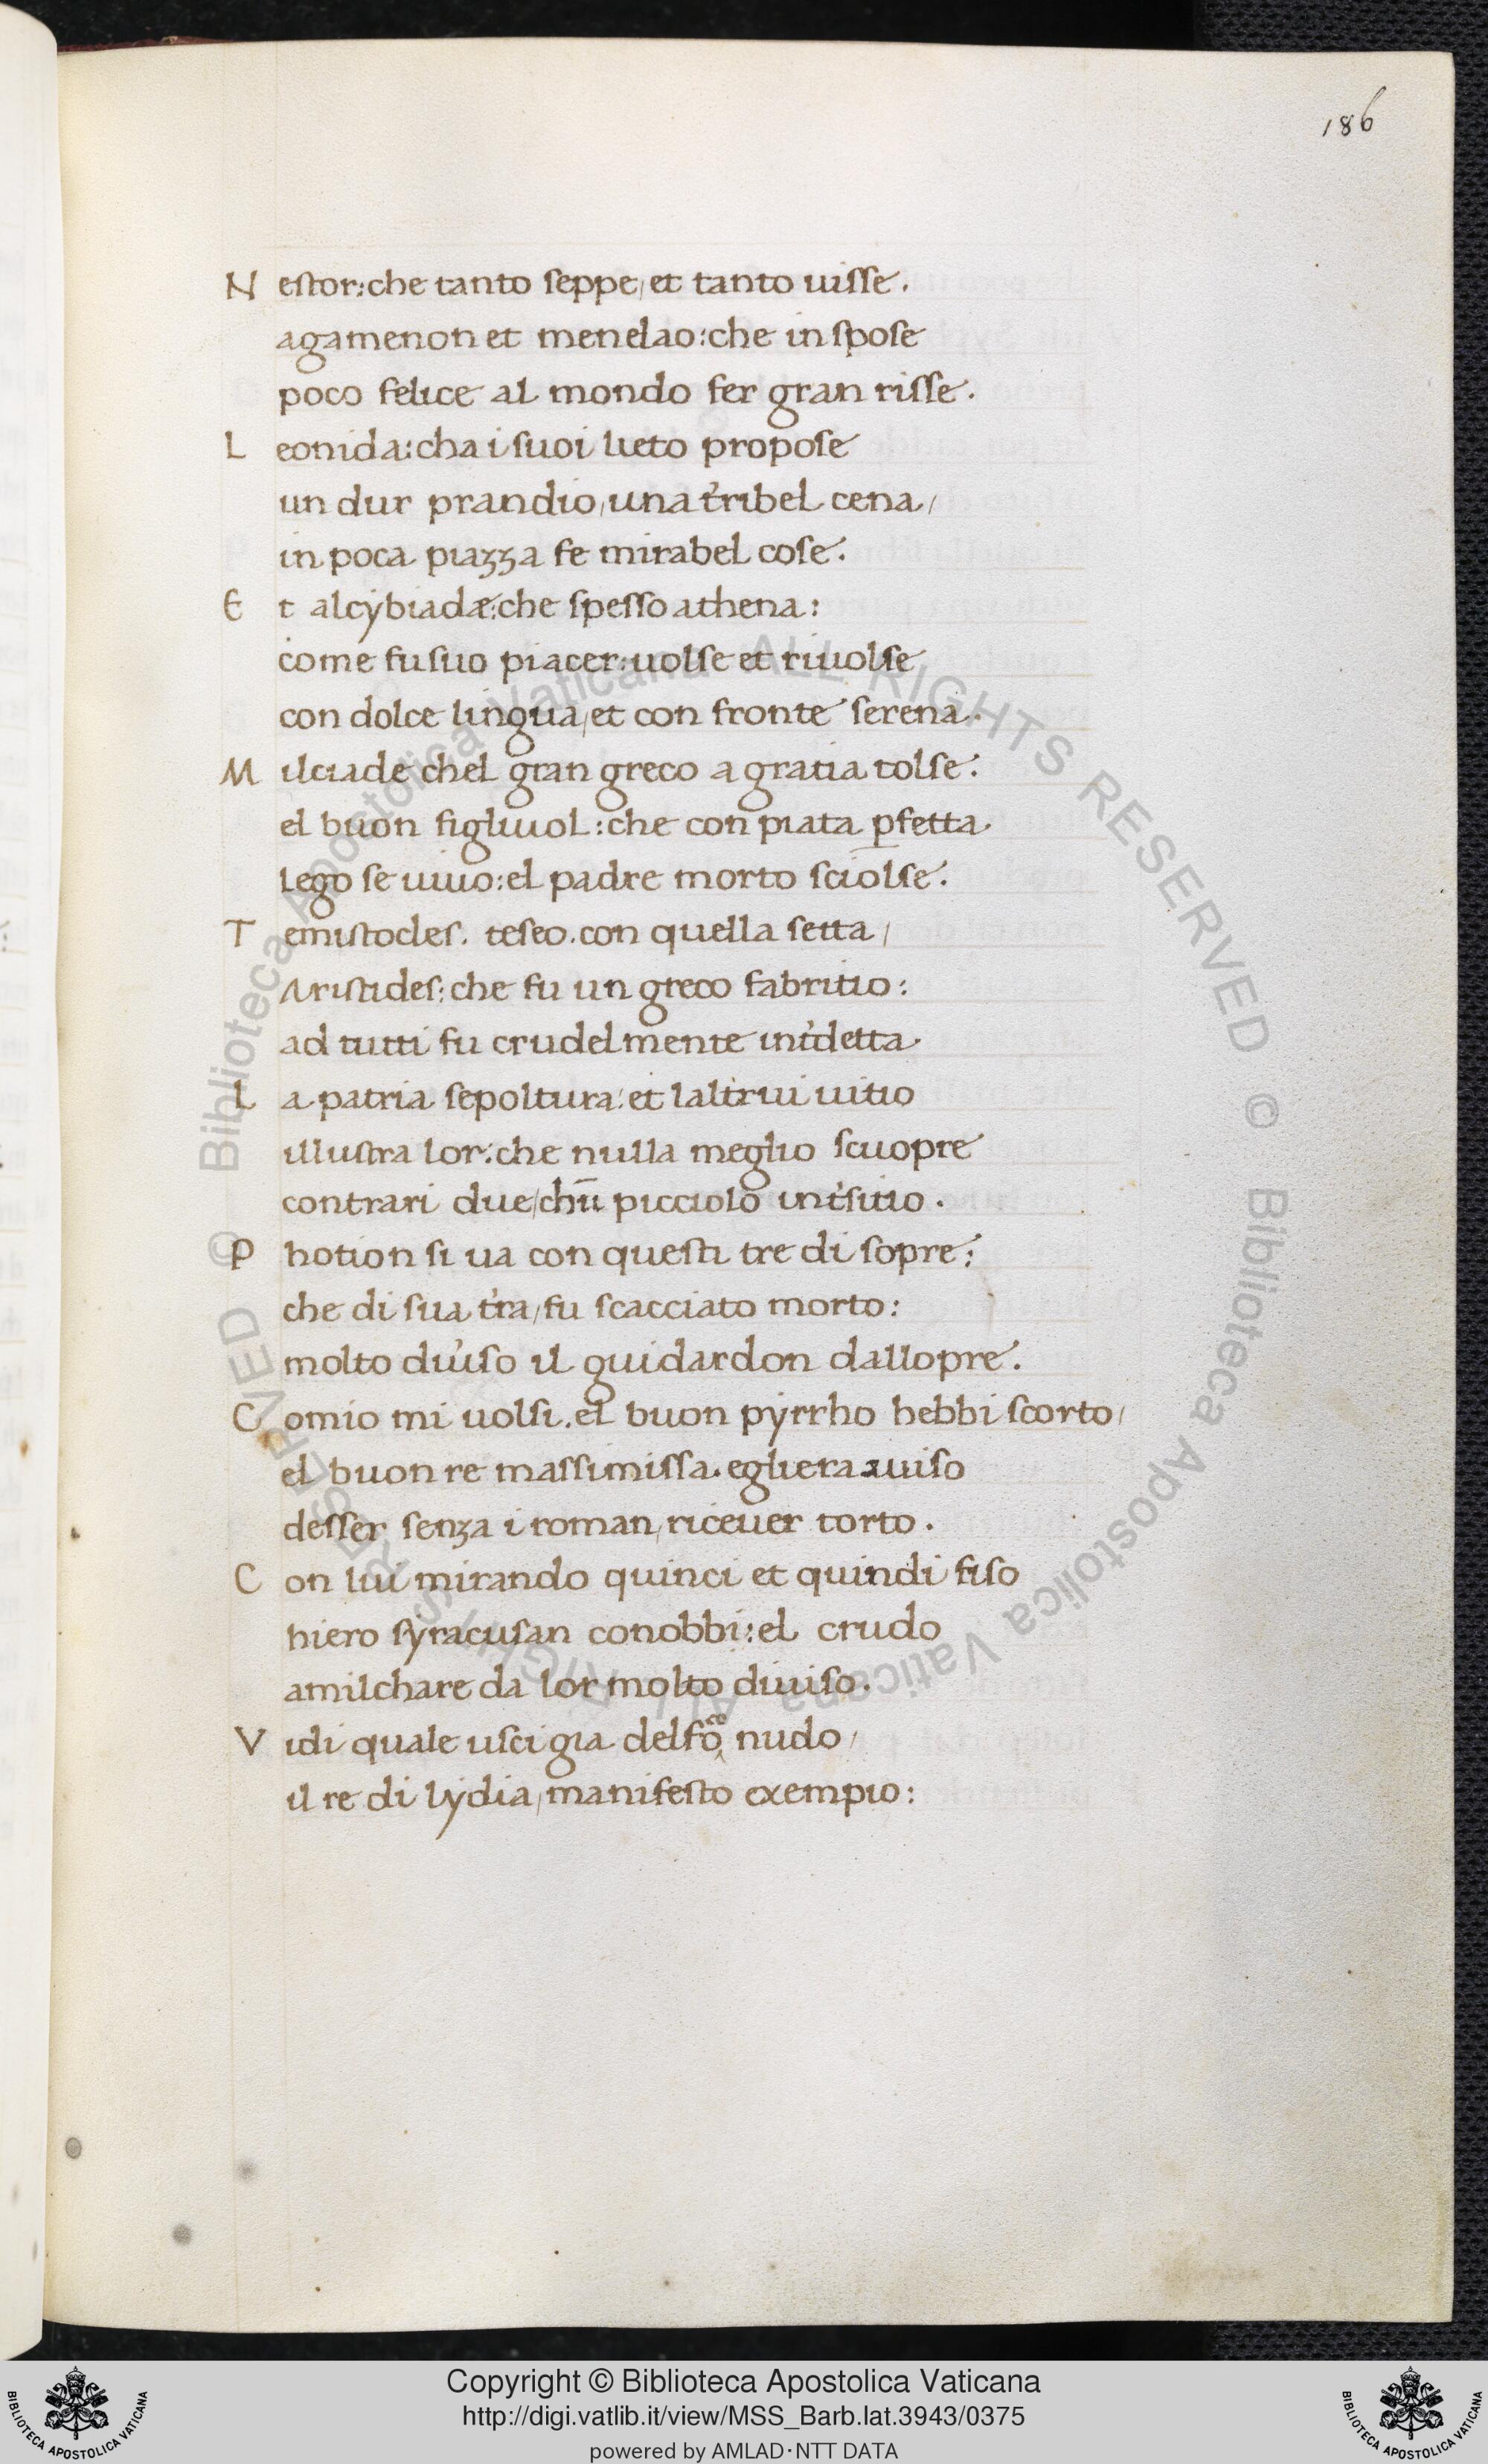 186
N estor:che tanto seppe/et tanto uisse.
agamenon et menelao:che in spose
poco felice al mondo fer gran risse.
L eonida:cha i suoi lieto propose
un dur prandio/una t'ribel cena/
in poca piazza fe mirabel cose.
E t alcybiadæ:che spesso athena:
come fu suo piacer:uolse et riuolse
con dolce lingua/et con fronte serena.
M ilciade chel gran greco a gratia tolse:
el buon figliuol:che con piata p̱fetta.
Lego se uiuo:el padre morto sciolse.
T emistocles. teseo.con quella setta/
Aristides:che fu un greco fabritio:
ad tutti fu crudelmente int'detta.
L a patria sepoltura:et laltrui uitio
illustra lor:che nulla meglio scuopre
contrari due/chū picciolo int'sitio.
P hotion si ua con questi tre di sopre:
che di sua t'ra/fu scacciato morto:
molto diu'so il guidardon dallopre.
C omio mi uolsi.el buon pyrrho hebbi scorto/
el buon re massimissa.egliera auiso
desser senza i roman/riceuer torto.
C on lui mirando quinci et quindi fiso
hiero syracusan conobbi:el crudo
amilchare da lor molto diuiso.
V idi quale usci gia delfo^co nudo/
il re di lydia/manifesto exempio:
© Biblioteca Apostolica Vaticana ALL RIGHTS RESERVED © Biblioteca Apostolica Vaticana ALL RIGHTS RESERVED
Copyright © Biblioteca Apostolica Vaticana
http://digi.vatlib.it/view/MSS_Barb.lat.3943/0375
powered by AMLAD·NTT DATA
BIBLIOTECA APOSTOLICA VATICANA
BIBLIOTECA APOSTOLICA VATICANA